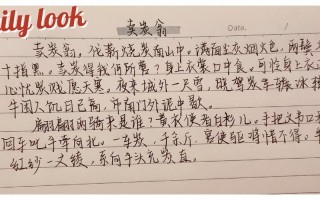 ily look
卖炭翁
Date. /
卖炭翁,伐薪烧炭南山中。满面尘灰烟火色,两鬓
十指黑。卖炭得钱何所营?身上衣裳口中食。可怜身上衣
心忧炭贱愿天寒。夜来城外一尺雪,晓驾炭车辗冰
牛困人饥日已高,市南门外泥中歇。
翩翩两骑来是谁?黄衣使者白衫儿。手把文书口
回车叱牛牵向北。一车炭,千余斤,宫使驱将惜不得。
红纱一丈绫,系向牛头充炭直。